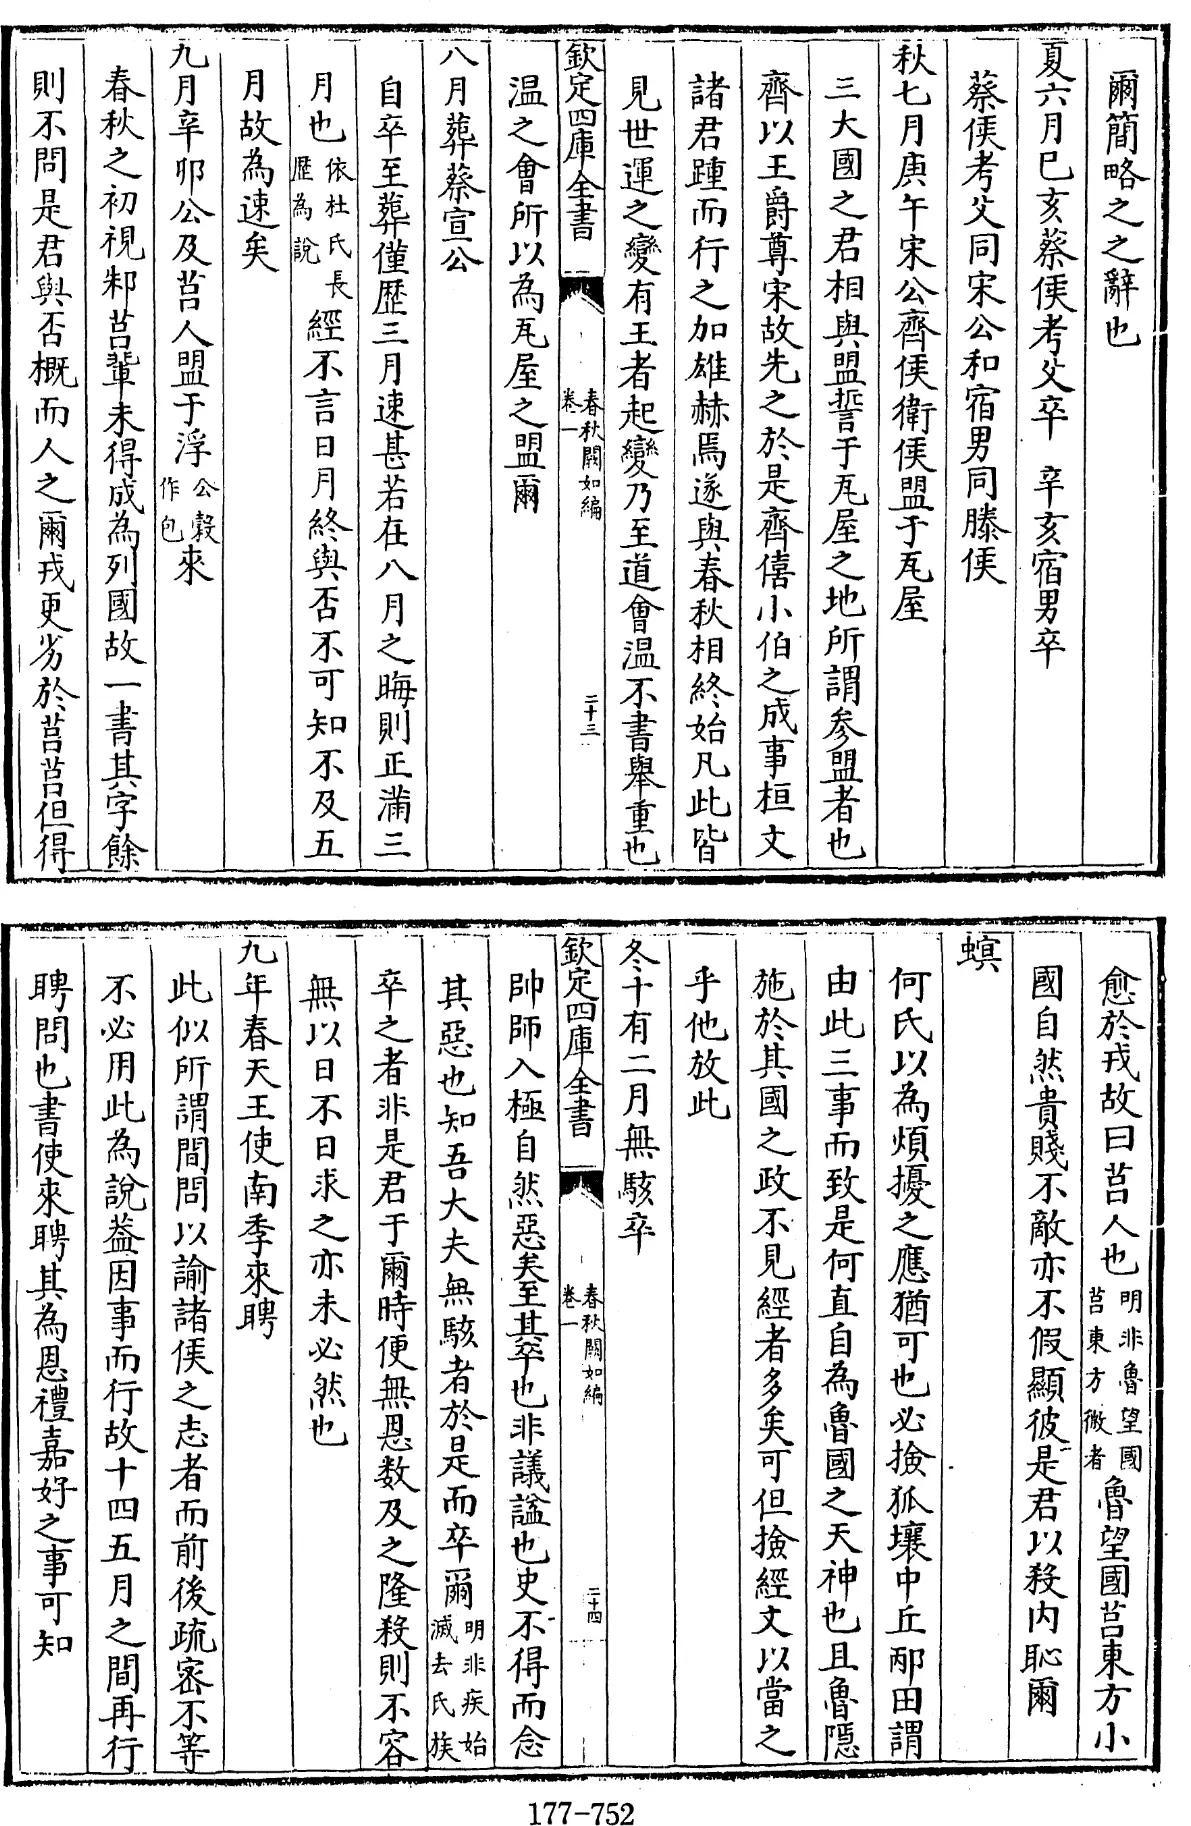 爾簡略之之辭也
夏六月己亥蔡侯考父卒　辛亥宿男卒
蔡侯考父同宋公和宿男同滕侯
秋七月庚午宋公齊侯衛侯盟于瓦屋
三大國之君相與盟誓于瓦屋之地所謂參盟者也
齊以王爵尊宋故先之於是齊僖小伯之成事桓文
諸君踵而行之加雄赫焉遂與春秋相終始凡此皆
見世運之變有王者起變乃至道會温不書舉重也
欽定四庫全書
春秋闕如編
卷一
二十三
温之會所以為瓦屋之盟爾
八月葬蔡宣公
自卒至葬僅歷三月速甚若在八月之晦則正滿三
月也依杜氏長歷為說經不言日月終與否不可知不及五
月故為速矣
九月辛卯公及莒人盟于浮公穀作包來
春秋之初視邾莒輩未得成為列國故一書其字餘
則不問是君與否概而人之爾戎更劣於莒莒但得
愈於戎故曰莒人也明非魯望國莒東方微者魯望國莒東方小
國自然貴賤不敵亦不假顯彼是君以殺内恥爾
螟
何氏以為煩擾之應猶可也必撿狐壤中丘邴田謂
由此三事而致是何直自為魯國之天神也且魯隱
施於其國之政不見經者多矣可但撿經文以當之
乎他放此
冬十有二月無駭卒
欽定四庫全書
春秋闕如編
卷一
二十四
帥師入極自然惡矣至其卒也非議諡也史不得而念
其惡也知吾大夫無駭者於是而卒爾明非疾始滅去氏族
卒之者非是君于爾時便無恩數及之隆殺則不容
無以日不日求之亦未必然也
九年春天王使南季來聘
此似所謂間問以諭諸侯之志者而前後疏密不等
不必用此為說葢因事而行故十四五月之間再行
聘問也書使來聘其為恩禮嘉好之事可知
177-752